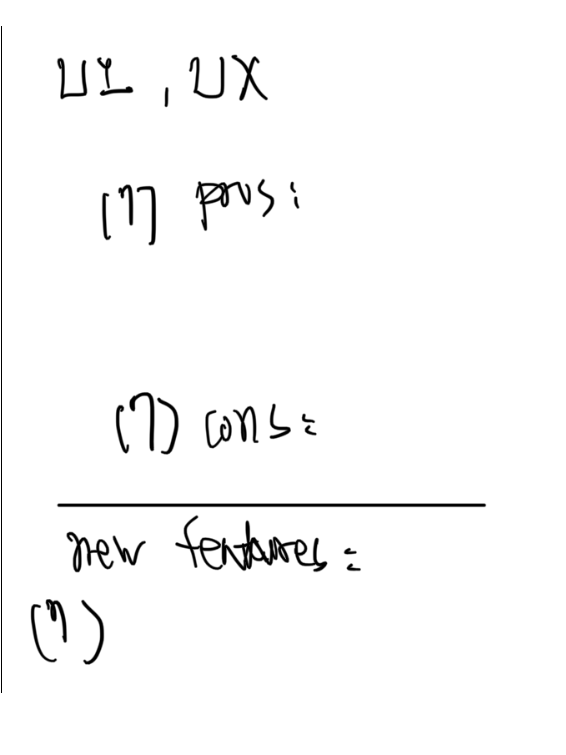 UI, UX
(7) pros:
(7) cons:
new features:
(7)